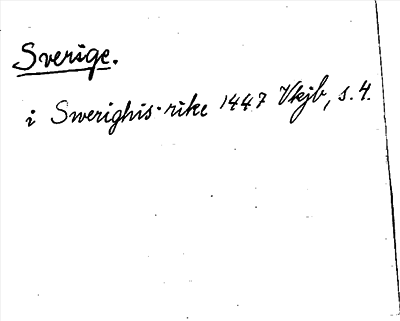 Sverige.
i Swerighis rike 1447 Vkjb, s. 4.